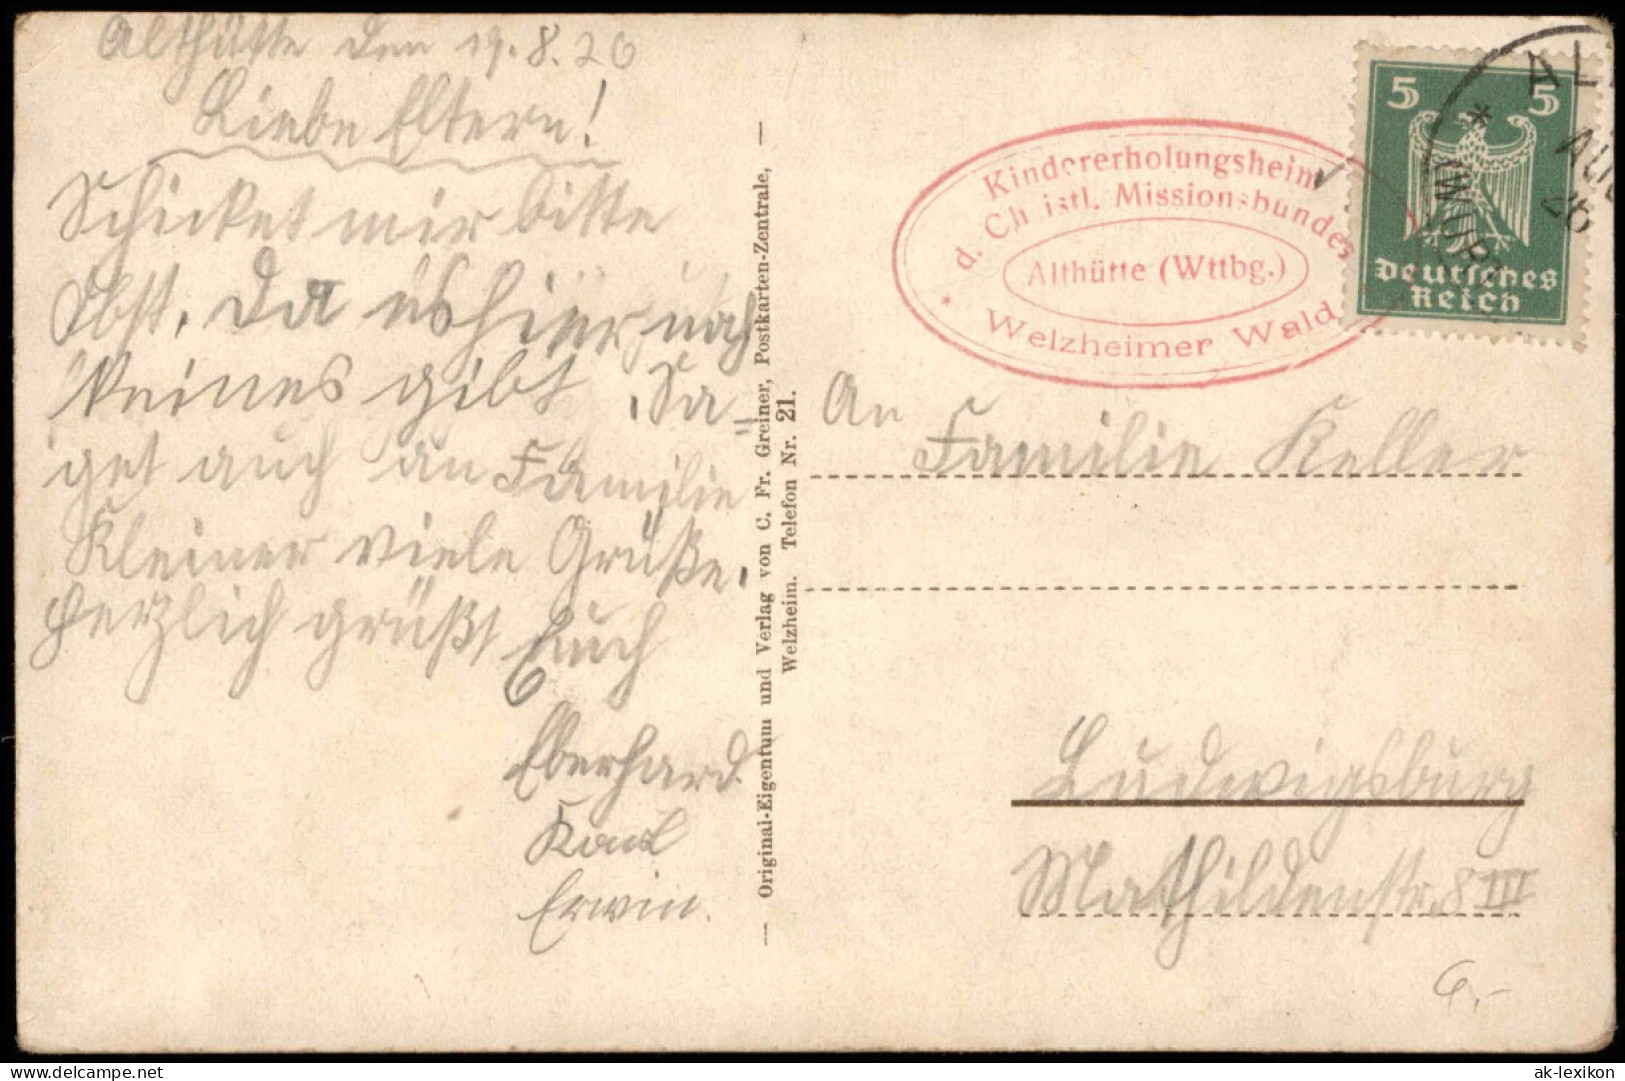 Althütte den 19.8.26
Liebe Eltern!
Schicket mir bitte
Obst, da es hier noch
keines gibt. Sa=
get auch an Familie
Kleiner viele Grüße.
Herzlich grüßt Euch
Eberhard
Karl
Erwin.
— Original-Eigentum und Verlag von C. Fr. Greiner, Postkarten-Zentrale, —
Welzheim. Telefon Nr. 21.
Kindererholungsheim
d. Ch istl. Missionsbundes
Althütte (Wttbg.)
* Welzheimer Wald
5 5
Deutsches
Reich
AL
* (WÜR
AUG
26
An
Familie Keller
Ludwigsburg
Mathildenstr. 8 III
6,-
www.delcampe.net
ak-lexikon